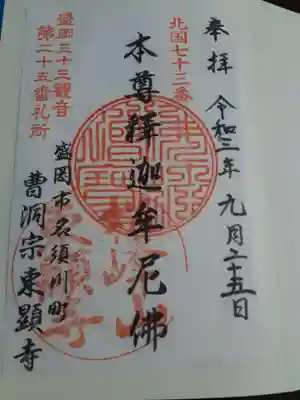 奉拝 令和三年 九月二十五日
北国七十三番
本尊釋迦牟尼佛
盛岡三十三観音
第二十五番札所
盛岡市名須川町
曹洞宗東顕寺